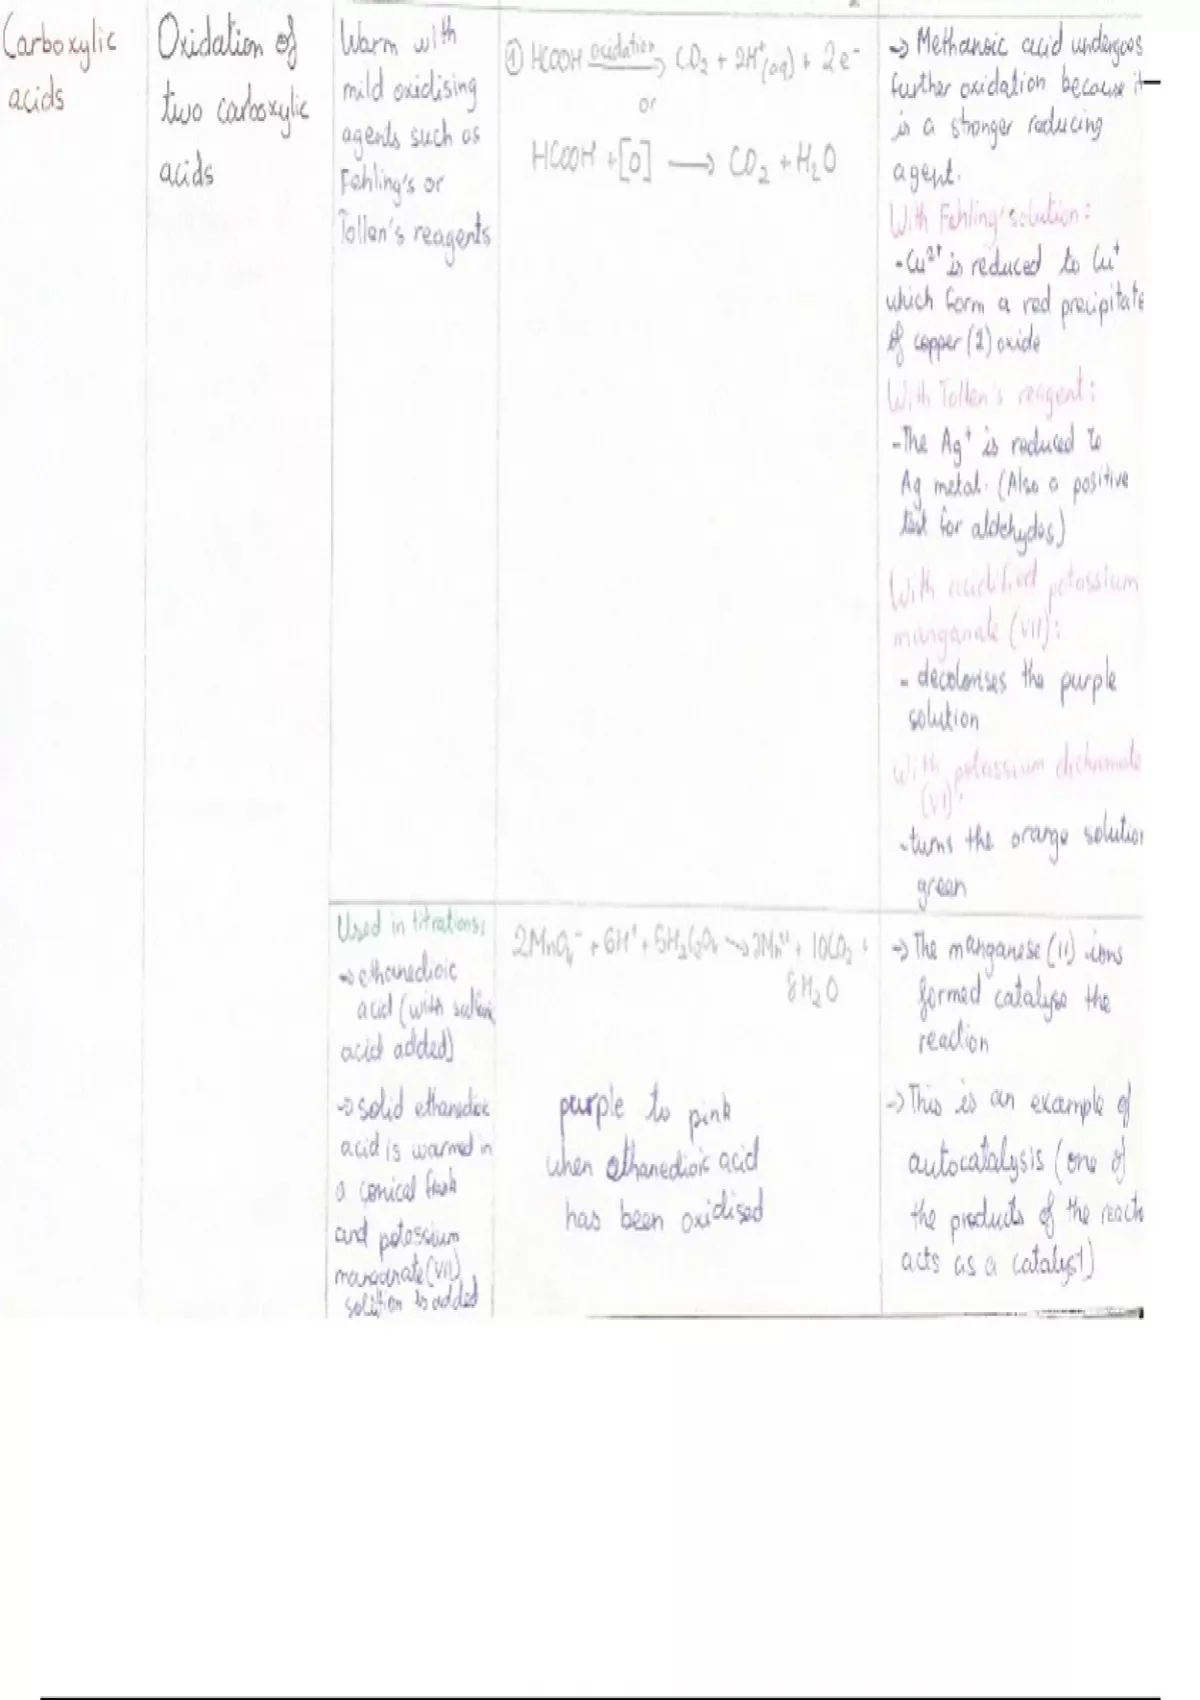 Carboxylic
acids
Oxidation of
two carboxylic
acids
Warm with
mild oxidising
agents such as
Fehling's or
Tollen's reagents
① HCOOH oxidation→ CO₂ + 2H⁺(aq) + 2e⁻
or
HCOOH + [O] → CO₂ + H₂O
→ Methanoic acid undergoes
further oxidation because it
is a stronger reducing
agent.
With Fehling's solution:
- Cu²⁺ is reduced to Cu⁺
which form a red precipitate
of copper (1) oxide
With Tollen's reagent:
- The Ag⁺ is reduced to
Ag metal. (Also a positive
test for aldehydes)
With acidified potassium
manganate (VII):
- decolorises the purple
solution
With potassium dichromate
(VI):
- turns the orange solution
green
Used in titrations:
→ ethanedioic
acid (with sulfuric
acid added)
→ solid ethanedioic
acid is warmed in
a conical flask
and potassium
manganate (VII)
solution is added
2MnO₄⁻ + 6H⁺ + 5H₂C₂O₄ → 2Mn²⁺ + 10CO₂ +
8H₂O
purple to pink
when ethanedioic acid
has been oxidised
→ The manganese (II) ions
formed catalyse the
reaction
→ This is an example of
autocatalysis (one of
the products of the reacto
acts as a catalyst)